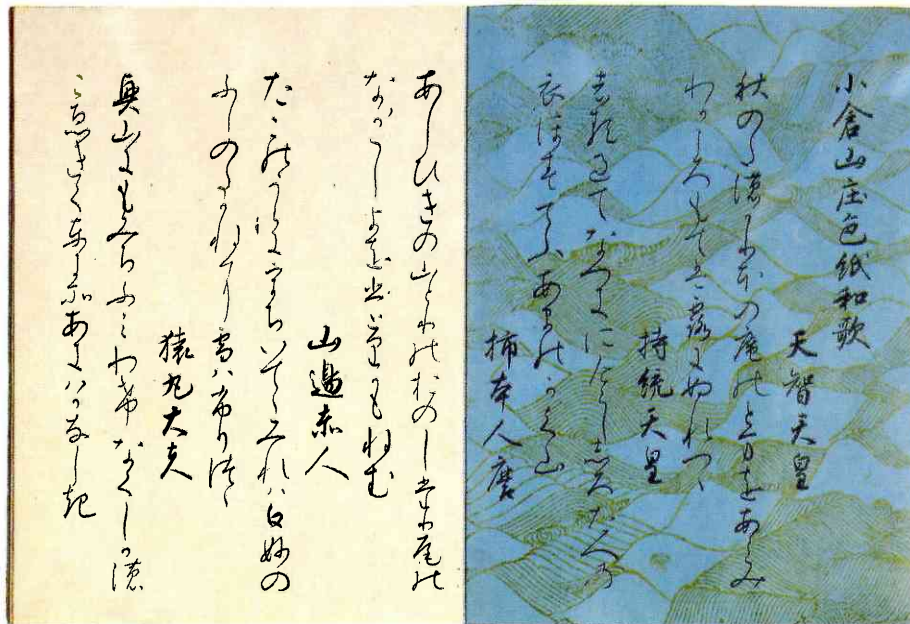 小倉山庄色紙和歌
天智天皇
秋のたのかりほの庵のとまをあらみ
わかころもては露にぬれつゝ
持統天皇
春過てなつきにけらし志ろたへの
衣ほすてふあまのかく山
柿本人麿
あしひきの山とりのをのしたり尾の
なか〳〵し夜を独かもねむ
山邊赤人
たこのうらにうちいてゝみれは白妙の
ふしのたかねに雪は降りつゝ
猿丸大夫
奥山にもみちふみわけなくしかの
こゑきくときそあきはかなしき